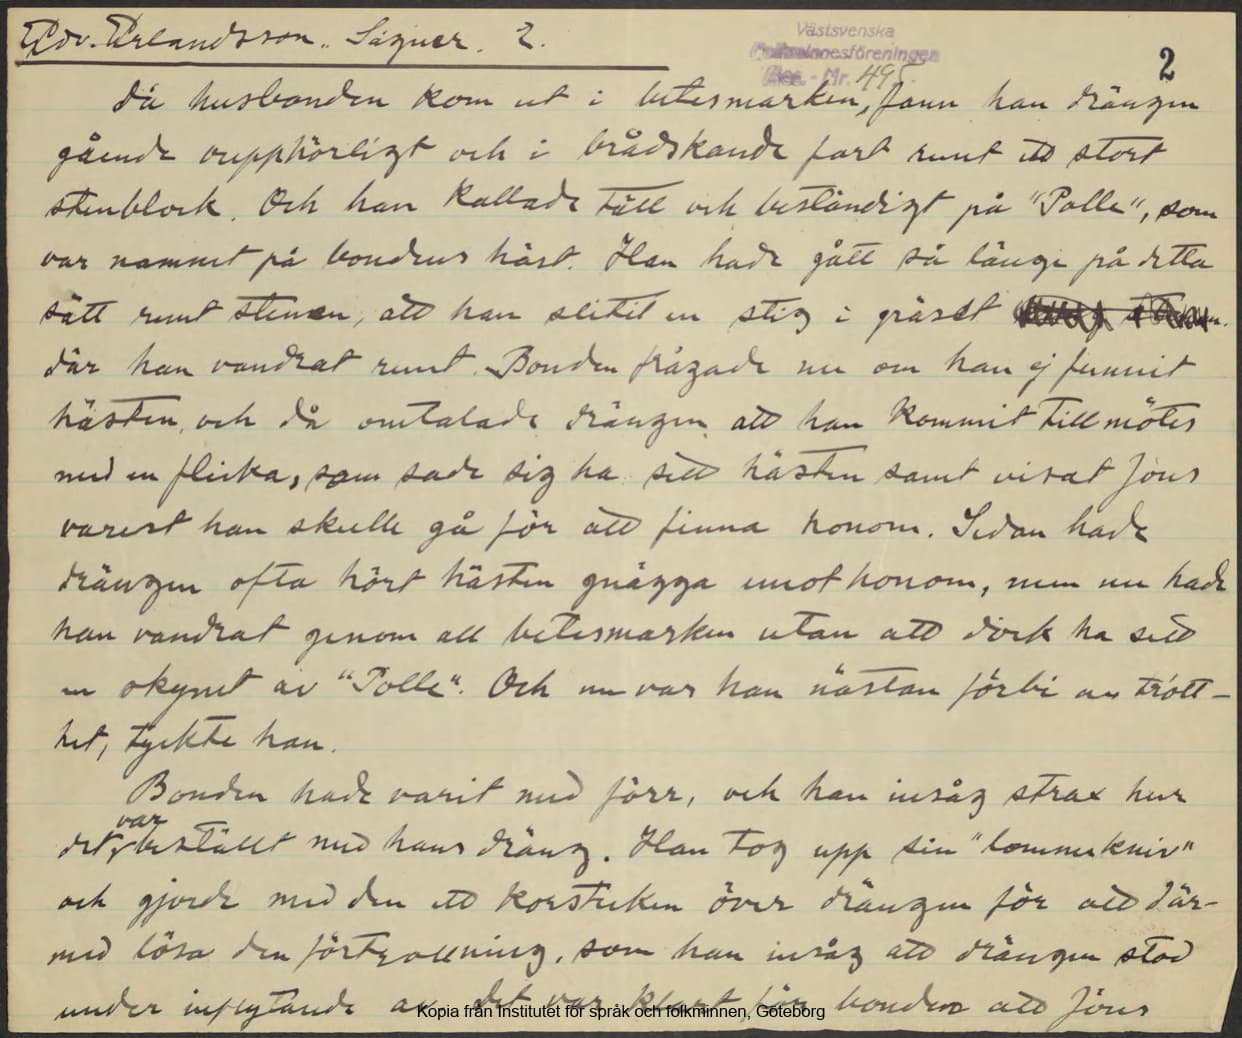 Edv. Erlandsson. Sägner. 2.
Västsvenska
Folkminnesföreningen
Acc. - Nr. 495.
2
Då husbonden kom ut i betesmarken, fann han drängen
gående oupphörligt och i brådskande fart runt ett stort
stenblock. Och han kallade tätt och beständigt på "Polle", som
var namnet på bondens häst. Han hade gått så länge på detta
sätt runt stenen, att han slitit en stig i gräset
där han vandrat runt. Bonden frågade nu om han ej funnit
hästen, och då omtalade drängen att han kommit till mötes
med en flicka, som sade sig ha sett hästen samt visat Jöns
varest han skulle gå för att finna honom. Sedan hade
drängen ofta hört hästen gnägga emot honom, men nu hade
han vandrat genom all betesmarken utan att dock ha sett
en skymt av "Polle". Och nu var han nästan förbi av trött-
het, tyckte han.
Bonden hade varit med förr, och han insåg strax hur
det var beställt med hans dräng. Han tog upp sin "lommekniv"
och gjorde med den ett korstecken över drängen för att där-
med lösa den förtrollning, som han insåg att drängen stod
under inflytande av. Det var klart för bonden att Jöns
Kopia från Institutet för språk och folkminnen, Göteborg